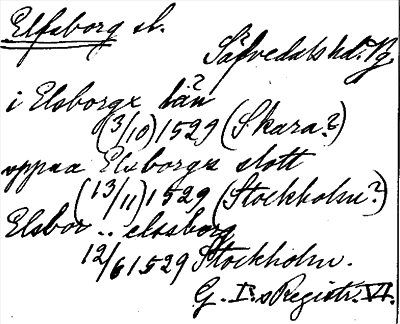 Elfsborg sl.
Säfvedals hd. Vg.
i Elsborgx län
(3/10) 1529 (Skara?)
uppaa Elsborgx slott
(13/11) 1529 (Stockholm?)
Elsbor .. elssborg
12/6 1529 Stockholm.
G. I:s Registr. VI.